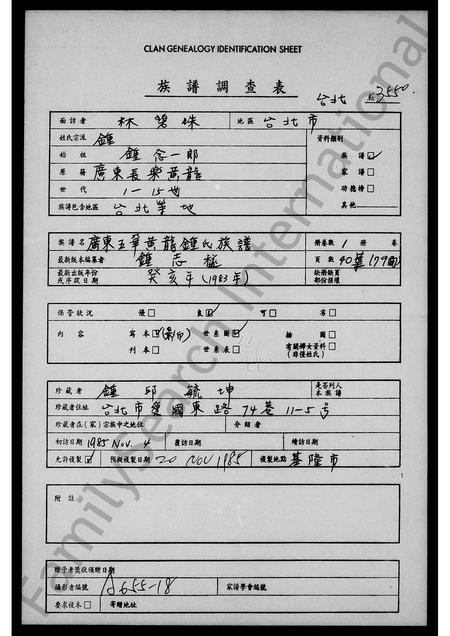 CLAN GENEALOGY IDENTIFICATION SHEET
族譜調查表
台北 № 3550
面訪者 林碧珠 地區 台北市
姓氏宗派 鍾 資料類別
始祖 鍾念一郎 族譜☑
原籍 廣東長樂黃龍 家譜□
世代 1－15世 功德榜□
族譜包含地區 台北等地 其他
族譜名 廣東五華黃龍鍾氏族譜 冊卷數 1 冊 卷
最新版本編纂者 鍾志極 頁數 40葉(79面)
最新出版年份或序跋日期 癸亥年(1983年) 缺冊缺頁部份損壞
保管狀況 優□ 良☑ 可□ 劣□
內容 寫本☑(影印) 世系圖☑ 插圖□
刊本□ 世系表□ 有關婦女資料□(非僅姓氏)
珍藏者 鍾邱毓坤 是否列入本族譜
珍藏者住址 台北市愛國東路74巷11-5号
珍藏者在(家)宗族中之地位 介紹者
初訪日期 1985 Nov. 4 覆訪日期 續訪日期
允許複製☑ 預擬複製日期 20 NOV 1985 複製地點 基隆市
附註
贈予者獎狀頒贈日期
攝影者編號 A655-18 家譜學會編號
要求複本□ 寄贈地址
FamilySearch International